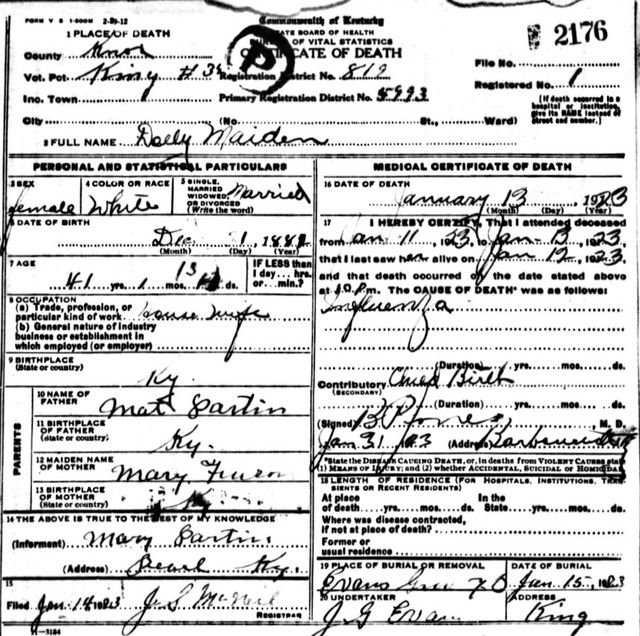 FORM V S 1-500M 2-30-12
Commonwealth of Kentucky
STATE BOARD OF HEALTH
BUREAU OF VITAL STATISTICS
CERTIFICATE OF DEATH
2176
1 PLACE OF DEATH
County Knox
Vot. Pct. King #3 Registration District No. 819
File No.
Inc. Town Primary Registration District No. 5993
Registered No. 1
City (No. St., Ward)
[If death occurred in a hospital or institution, give its NAME instead of street and number.]
P
2 FULL NAME Dolly Maiden
PERSONAL AND STATISTICAL PARTICULARS
3 SEX
female
4 COLOR OR RACE
White
5 SINGLE, MARRIED WIDOWED, OR DIVORCED
(Write the word)
Married
6 DATE OF BIRTH
Dec 1, 188
(Month) (Day) (Year)
7 AGE
41 yrs. 1 mos. 13 ds.
IF LESS than 1 day... hrs. or ... min.?
8 OCCUPATION
(a) Trade, profession, or particular kind of work house wife
(b) General nature of industry business or establishment in which employed (or employer)
9 BIRTHPLACE
(State or country)
Ky.
PARENTS
10 NAME OF FATHER
Mat Sartin
11 BIRTHPLACE OF FATHER
(State or country)
Ky.
12 MAIDEN NAME OF MOTHER
Mary
13 BIRTHPLACE OF MOTHER
(State or country)
Ky
14 THE ABOVE IS TRUE TO THE BEST OF MY KNOWLEDGE
(Informant) Mary Sartin
(Address) Ky.
15
Filed Jan. 14 1923 J S McNeil
REGISTRAR
11-3184
MEDICAL CERTIFICATE OF DEATH
16 DATE OF DEATH
January 13 1923
(Month) (Day) (Year)
17 I HEREBY CERTIFY, That I attended deceased
from Jan 11, 1923, to Jan 13, 1923,
that I last saw her alive on Jan 12, 1923,
and that death occurred on the date stated above
at P.m. The CAUSE OF DEATH* was as follows:
Influenza
(Duration) yrs. mos. ds.
Contributory Child Birth
(SECONDARY)
(Duration) yrs. mos. ds.
(Signed) B P Jones, M. D.
Jan 31 1923 (Address) Barbourville
*State the DISEASE CAUSING DEATH, or, in deaths from VIOLENT CAUSES state
1) MEANS OF INJURY; and (2) whether ACCIDENTAL, SUICIDAL or HOMICIDAL
18 LENGTH OF RESIDENCE (FOR HOSPITALS, INSTITUTIONS, TRANSIENTS OR RECENT RESIDENTS)
At place of death yrs. mos. ds. In the State yrs. mos. ds.
Where was disease contracted, if not at place of death?
Former or usual residence
19 PLACE OF BURIAL OR REMOVAL
Evans
DATE OF BURIAL
Jan. 15, 1923
20 UNDERTAKER
J G Evans
ADDRESS
King